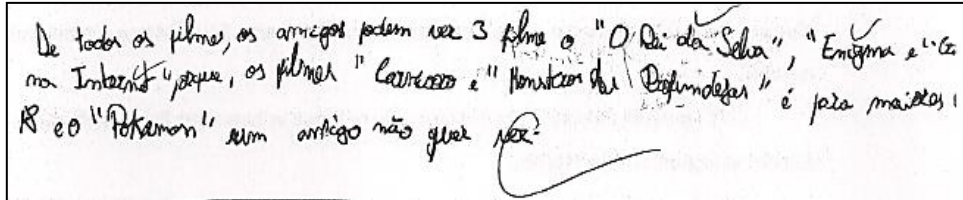 De todos os filmes, os amigos podem ver 3 filme o "O Rei da Selva", "Enigma e
na Internet" porque, os filmes " e "Monstros das Profundezas" é para maiores
18 e o "Pokemon" um amigo não quer ver.